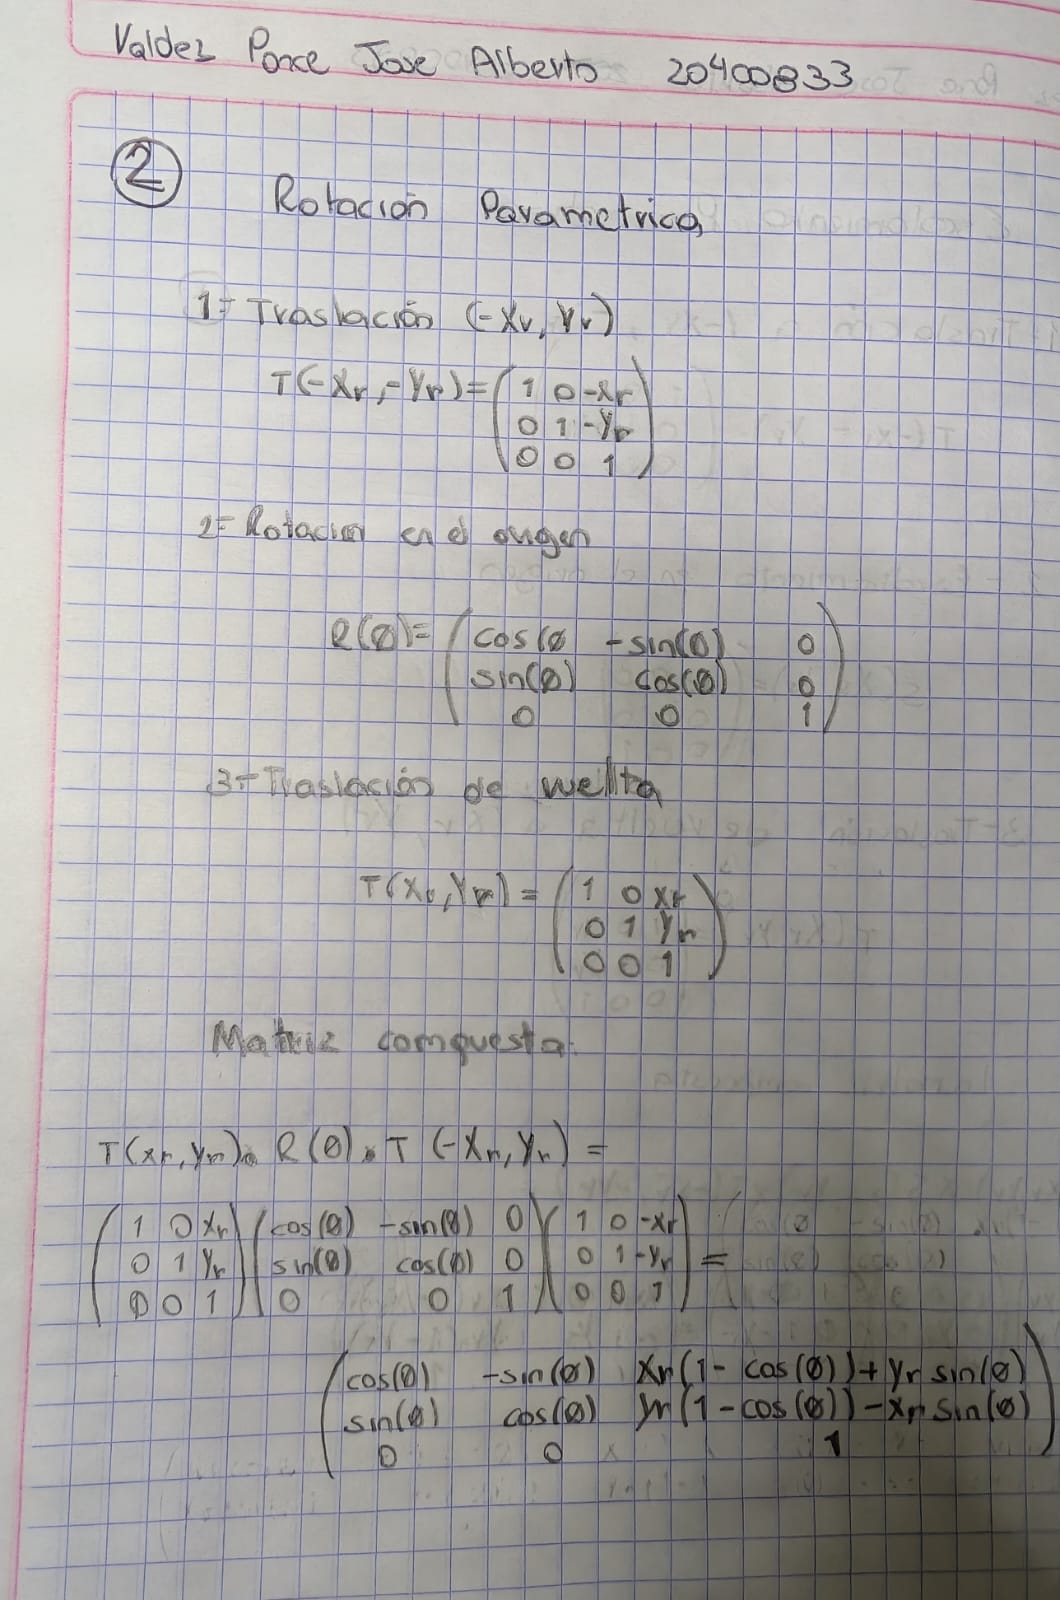 Valdez Ponce Jose Alberto 20400833
2
Rotación Parametrica
1- Traslación (-Xr, Yr)
T(-Xr, -Yr) = ( 1 0 -Xr
0 1 -Yr
0 0 1 )
2- Rotacion en el origen
R(Ø) = ( cos(Ø -sin(Ø) 0
sin(Ø) cos(Ø) 0
0 0 1 )
3- Traslación de vuellta
T(Xr, Yr) = ( 1 0 Xr
0 1 Yr
0 0 1 )
Matriz compuesta:
T(xr, yr). R(Ø). T(-Xr, Yr) =
( 1 0 Xr ) ( cos(Ø) -sin(Ø) 0 ) ( 1 0 -Xr )
0 1 Yr sin(Ø) cos(Ø) 0 0 1 -Yr =
0 0 1 0 0 1 0 0 1
( cos(Ø) -sin(Ø) Xr(1- cos(Ø))+ Yr sin(Ø)
sin(Ø) cos(Ø) Yr(1-cos(Ø))-Xr sin(Ø)
0 0 1 )